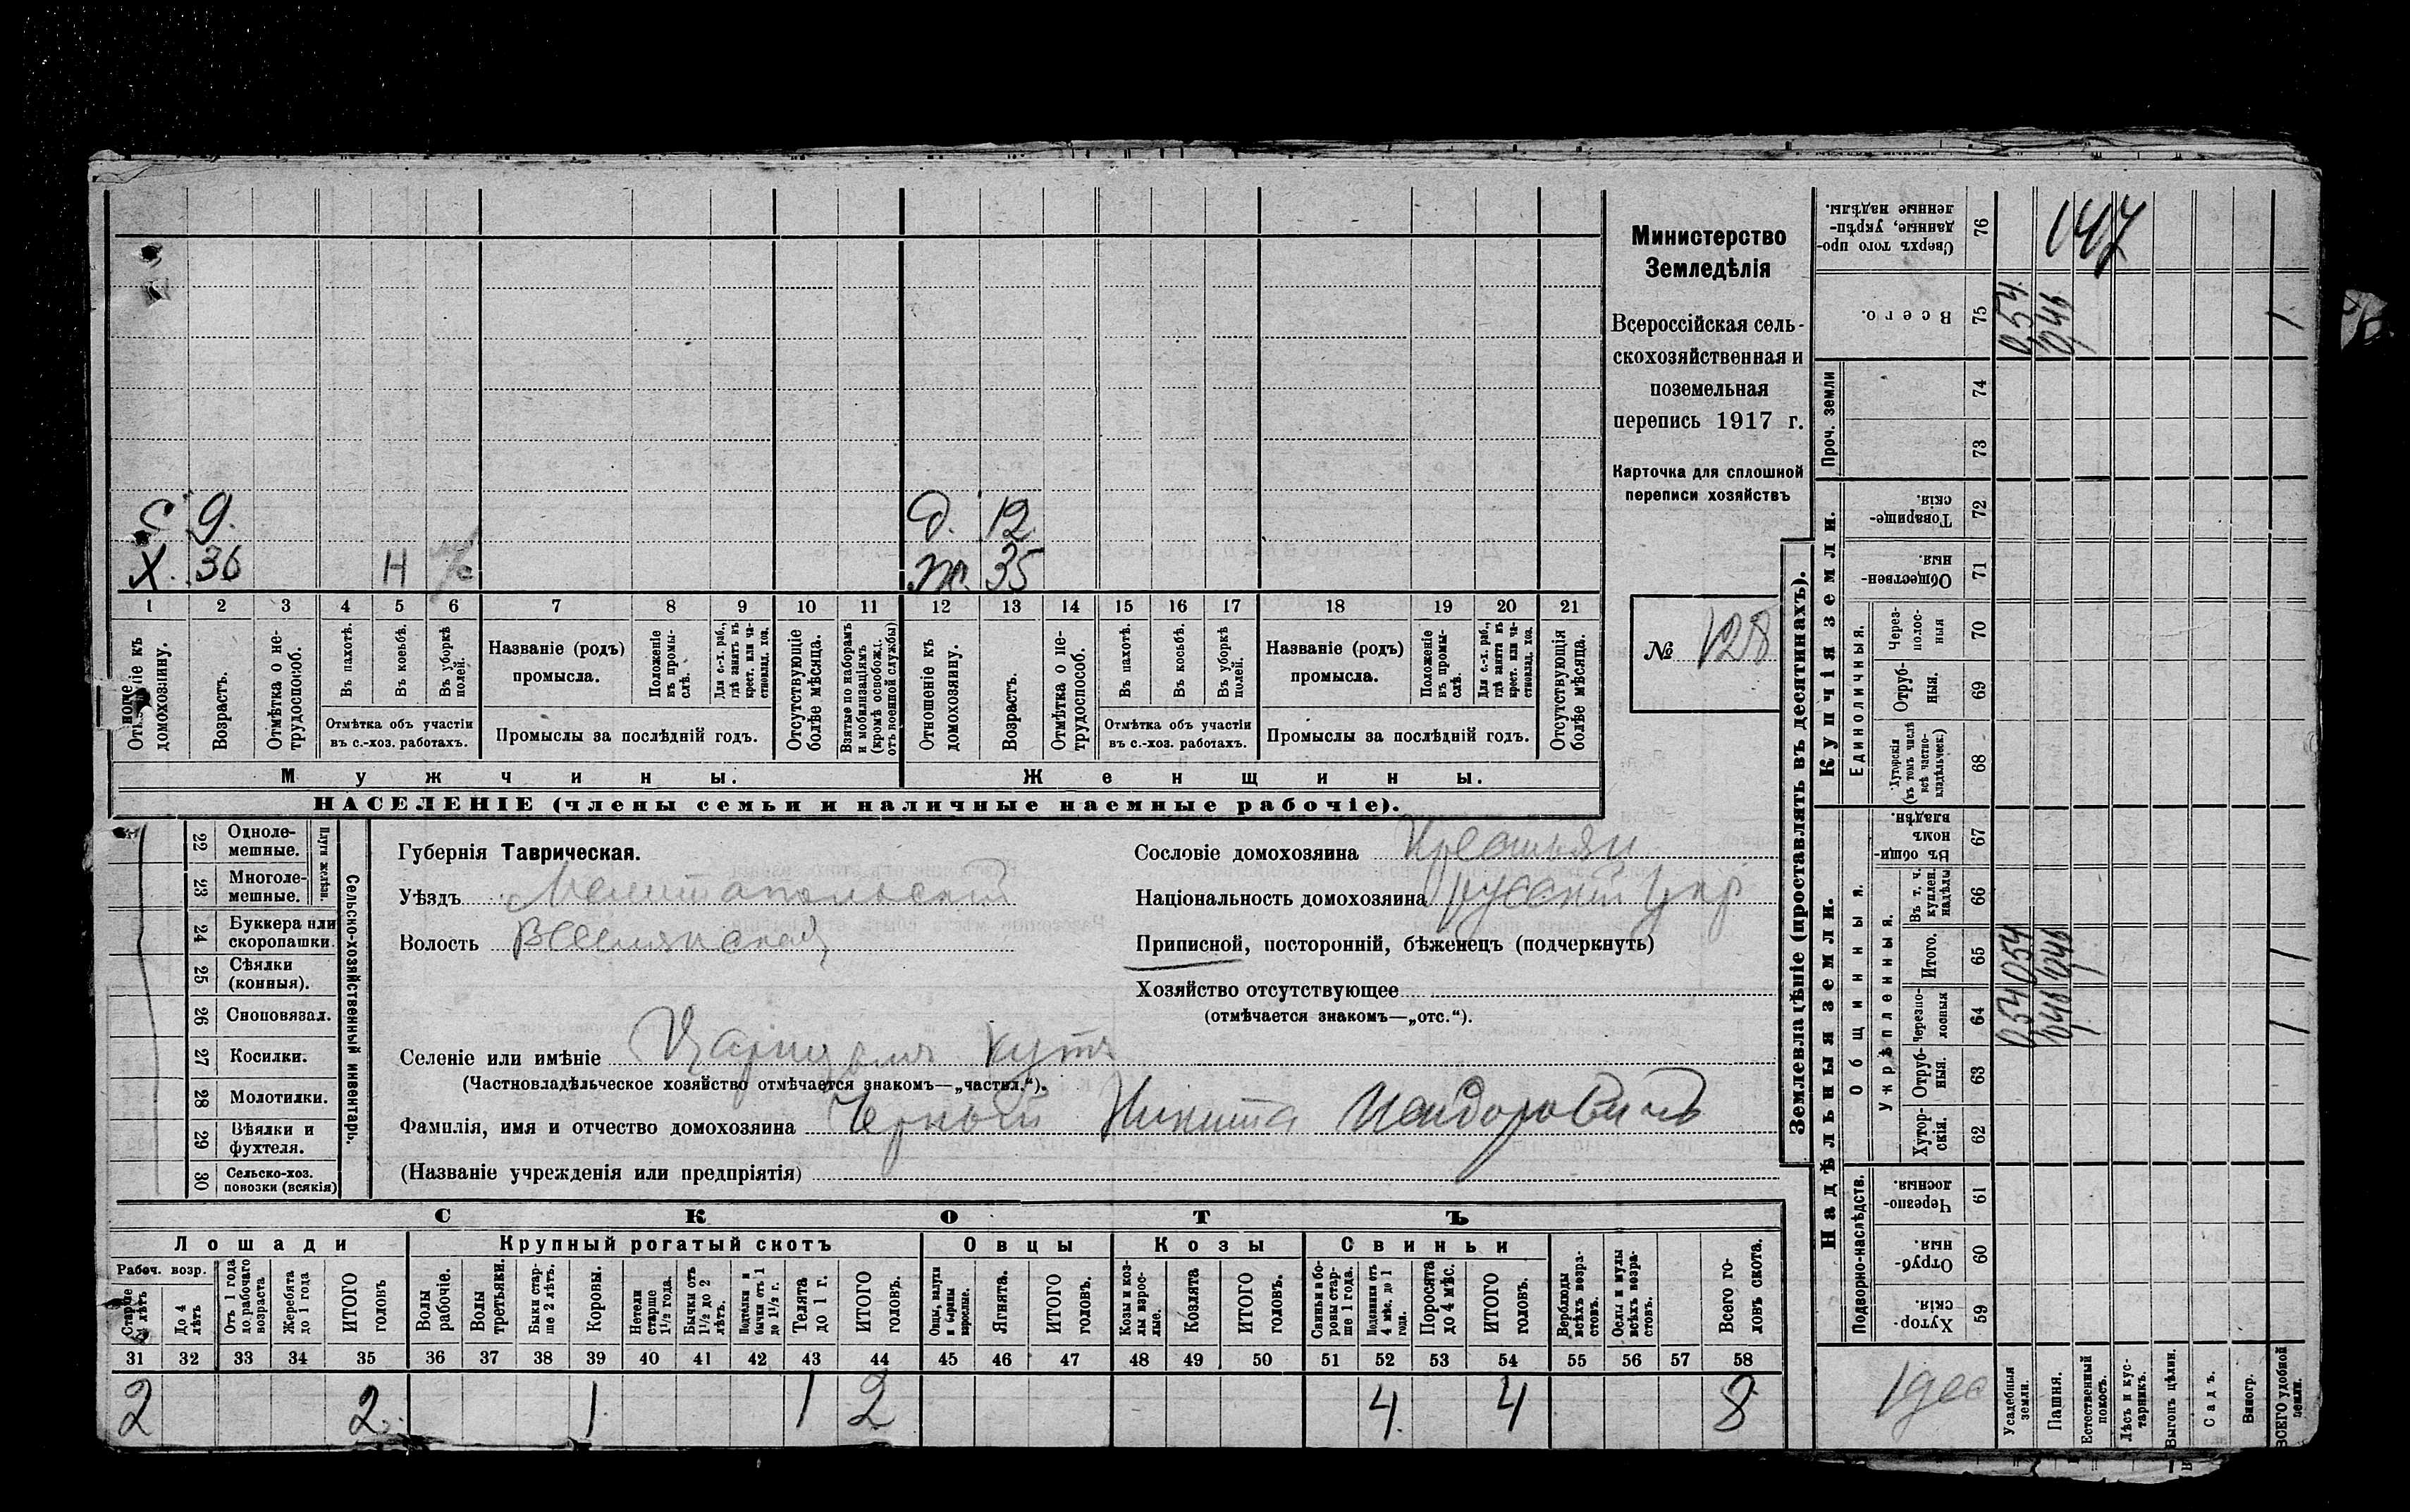 Министерство
Земледѣлія
Всероссійская сель-
скохозяйственная и
поземельная
перепись 1917 г.
Карточка для сплошной
переписи хозяйствъ
№ 128
С. 9.
Х. 36 Н
Д. 12
Ж. 35
1 2 3 4 5 6 7 8 9 10 11 12 13 14 15 16 17 18 19 20 21
Отношеніе къ домохозяину.
Возрастъ.
Отмѣтка о не-трудоспособ.
Въ пахотѣ.
Въ косьбѣ.
Въ уборкѣ полей.
Отмѣтка объ участіи
въ с.-хоз. работахъ.
Названіе (родъ)
промысла.
Положеніе въ промы-слѣ.
Для с.-х. раб., гдѣ занятъ въ крест. или ча-стновлад. хоз.
Промыслы за послѣдній годъ.
Отсутствующіе болѣе мѣсяца.
Взятые по наборамъ и мобилизаціямъ (кромѣ освобожд. отъ военной службы)
Отношеніе къ домохозяину.
Возрастъ.
Отмѣтка о не-трудоспособ.
Въ пахотѣ.
Въ косьбѣ.
Въ уборкѣ полей.
Отмѣтка объ участіи
въ с.-хоз. работахъ.
Названіе (родъ)
промысла.
Положеніе въ промы-слѣ.
Для с.-х. раб., гдѣ занята въ крест. или ча-стновлад. хоз.
Промыслы за послѣдній годъ.
Отсутствующія болѣе мѣсяца.
Мужчины.
Женщины.
НАСЕЛЕНІЕ (члены семьи и наличные наемные рабочіе).
22 Одноле-мешные.
23 Многоле-мешные.
Плуги желѣзн.
24 Буккера или скоропашки.
25 Сѣялки (конныя).
26 Сноповязал.
27 Косилки.
28 Молотилки.
29 Вѣялки и фухтеля.
30 Сельско-хоз. повозки (всякія)
Сельско-хозяйственный инвентарь.
Губернія Таврическая.
Уѣздъ Мелитопольский
Волость Веселянская
Сословіе домохозяина Крестьян
Національность домохозяина русский Укр
Приписной, посторонній, бѣженецъ (подчеркнуть)
Хозяйство отсутствующее
(отмѣчается знакомъ—„отс.“).
Селеніе или имѣніе Царицын Кутъ
(Частновладѣльческое хозяйство отмѣчается знакомъ—„частвл.“).
Фамилія, имя и отчество домохозяина Черный Никита Исидоровичъ
(Названіе учрежденія или предпріятія)
СКОТЪ
Лошади
Крупный рогатый скотъ
Овцы
Козы
Свиньи
Рабоч. возр.
Старше 4 лѣтъ
До 4 лѣтъ
Отъ 1 года до рабочаго возраста
Жеребята до 1 года
ИТОГО головъ
Волы рабочіе.
Волы третьяки.
Быки стар-ше 2 лѣтъ.
Коровы.
Нетели старше 1½ года.
Бычки отъ 1½ до 2 лѣтъ.
Подтелки и бычки отъ 1 до 1½ г.
Телята до 1 г.
ИТОГО головъ.
Овцы, валухи и бараны взрослые.
Ягнята.
ИТОГО головъ.
Козы и коз-лы взрос-лые.
Козлята
ИТОГО головъ.
Свиньи и бо-ровы стар-ше 1 года.
Подсвинки отъ 4 мѣс. до 1 года.
Поросята до 4 мѣс.
ИТОГО головъ.
Верблюды всѣхъ возра-стовъ.
Ослы и мулы всѣхъ возра-стовъ.
Всего го-ловъ скота.
31 32 33 34 35 36 37 38 39 40 41 42 43 44 45 46 47 48 49 50 51 52 53 54 55 56 57 58
2 2 1 1 2 4 4 8
Землевладѣніе (проставлять въ десятинахъ).
147
Сверхъ того про-данные, укрѣп-ленные надѣлы. 76
Всего. 75 0,54 0,46 1
Проч. земли
74
73
Купчія земли.
Товарище-скія. 72
Обществен-ныя. 71
Единоличныя.
Через-полос-ныя 70
Отруб-ныя. 69
Хуторскія (въ томъ числѣ всѣ частно-владѣльческ.) 68
Надѣльныя земли.
Общинныя.
Въ общин-номъ владѣн. 67
Укрѣпленныя.
Въ т. ч. куплен. надѣлы 66
Итого. 65 0,54 0,46 1
Черезпо-лосныя 64 0,54 0,46 1
Отруб-ныя. 63
Хутор-скія. 62
Подворно-наслѣдств.
Черезпо-лосныя. 61
Отруб-ныя. 60
Хутор-скія. 59
1 дес
Усадебныя земли.
Пашня.
Естественный покосъ.
Лѣсъ и кус-тарникъ.
Выгонъ цѣлин.
Садъ.
Виногр.
ВСЕГО удобной земли.